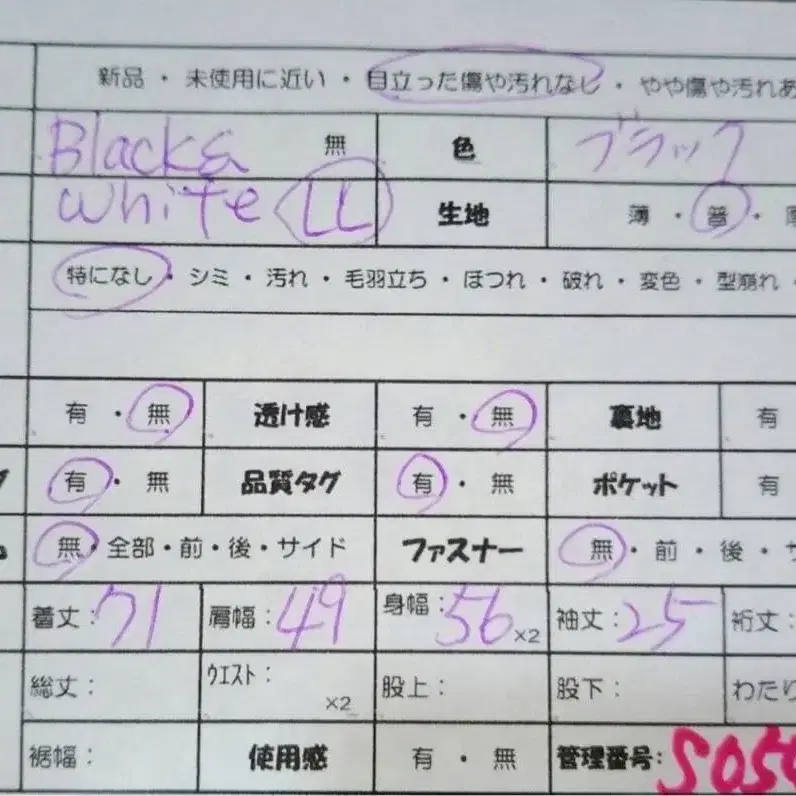 新品 ・ 未使用に近い ・ 目立った傷や汚れなし ・ やや傷や汚れあ
Black& 無 色 ブラック
White LL 生地 薄 ・ 普 ・
特になし ・ シミ ・ 汚れ ・ 毛羽立ち ・ ほつれ ・ 破れ ・ 変色 ・ 型崩れ
有 ・ 無 透け感 有 ・ 無 裏地 有
有 ・ 無 品質タグ 有 ・ 無 ポケット 有
無 ・ 全部 ・ 前 ・ 後 ・ サイド ファスナー 無 ・ 前 ・ 後 ・
着丈：71 肩幅：49 身幅：56 ×2 袖丈：25 裄丈：
総丈： ウエスト： ×2 股上： 股下： わたり
裾幅： 使用感 有 ・ 無 管理番号：S05